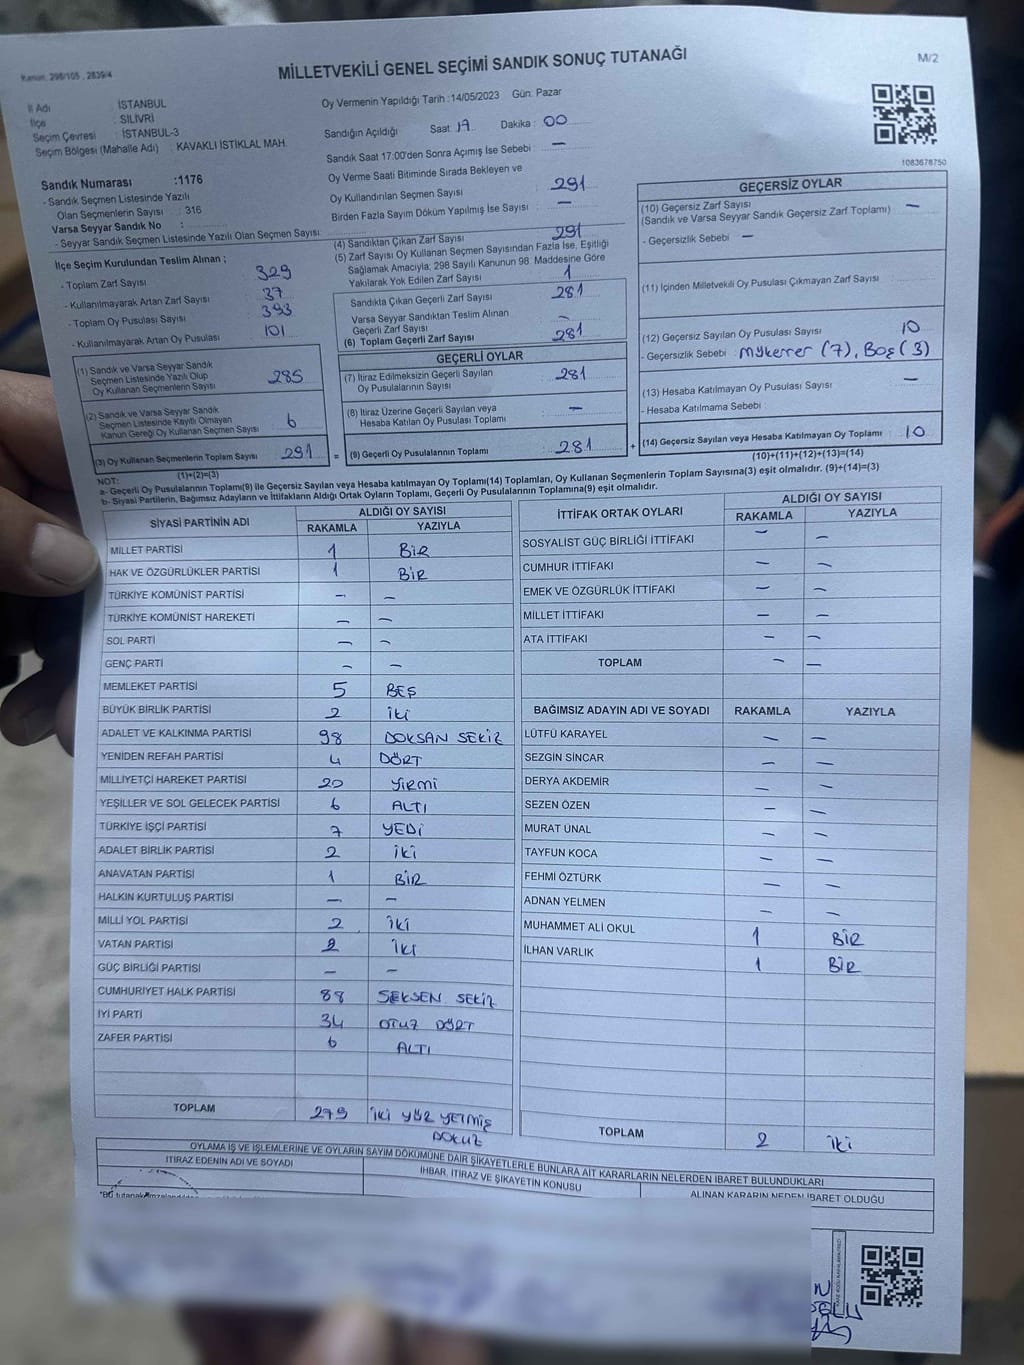 Kanun: 298/105 , 2839/4
MİLLETVEKİLİ GENEL SEÇİMİ SANDIK SONUÇ TUTANAĞI
M/2
İl Adı : İSTANBUL
İlçe : SİLİVRİ
Seçim Çevresi : İSTANBUL-3
Seçim Bölgesi (Mahalle Adı) : KAVAKLI İSTİKLAL MAH.
Oy Vermenin Yapıldığı Tarih : 14/05/2023 Gün: Pazar
Sandığın Açıldığı Saat 17 Dakika : 00
Sandık Saat 17:00'den Sonra Açımış İse Sebebi : —
Oy Verme Saati Bitiminde Sırada Bekleyen ve
Oy Kullandırılan Seçmen Sayısı : 291
Birden Fazla Sayım Döküm Yapılmış İse Sayısı : —
1083678750
Sandık Numarası :1176
- Sandık Seçmen Listesinde Yazılı
Olan Seçmenlerin Sayısı : 316
Varsa Seyyar Sandık No :
- Seyyar Sandık Seçmen Listesinde Yazılı Olan Seçmen Sayısı :
İlçe Seçim Kurulundan Teslim Alınan ;
- Toplam Zarf Sayısı 329
- Kullanılmayarak Artan Zarf Sayısı 37
- Toplam Oy Pusulası Sayısı 393
- Kullanılmayarak Artan Oy Pusulası 101
(1) Sandık ve Varsa Seyyar Sandık
Seçmen Listesinde Yazılı Olup
Oy Kullanan Seçmenlerin Sayısı : 285
(2) Sandık ve Varsa Seyyar Sandık
Seçmen Listesinde Kayıtlı Olmayan
Kanun Gereği Oy Kullanan Seçmen Sayısı 6
(3) Oy Kullanan Seçmenlerin Toplam Sayısı 291
(1)+(2)=(3)
(4) Sandıktan Çıkan Zarf Sayısı 291
(5) Zarf Sayısı Oy Kullanan Seçmen Sayısından Fazla İse, Eşitliği
Sağlamak Amacıyla; 298 Sayılı Kanunun 98. Maddesine Göre
Yakılarak Yok Edilen Zarf Sayısı : 1
Sandıkta Çıkan Geçerli Zarf Sayısı 281
Varsa Seyyar Sandıktan Teslim Alınan
Geçerli Zarf Sayısı : —
(6) Toplam Geçerli Zarf Sayısı : 281
GEÇERLİ OYLAR
(7) İtiraz Edilmeksizin Geçerli Sayılan
Oy Pusulalarının Sayısı : 281
(8) İtiraz Üzerine Geçerli Sayılan veya
Hesaba Katılan Oy Pusulası Toplamı : —
= (9) Geçerli Oy Pusulalarının Toplamı : 281
GEÇERSİZ OYLAR
(10) Geçersiz Zarf Sayısı —
(Sandık ve Varsa Seyyar Sandık Geçersiz Zarf Toplamı) :
- Geçersizlik Sebebi : —
(11) İçinden Milletvekili Oy Pusulası Çıkmayan Zarf Sayısı :
(12) Geçersiz Sayılan Oy Pusulası Sayısı : 10
- Geçersizlik Sebebi : Mükerrer (7), Boş (3)
(13) Hesaba Katılmayan Oy Pusulası Sayısı : —
- Hesaba Katılmama Sebebi :
+ (14) Geçersiz Sayılan veya Hesaba Katılmayan Oy Toplamı : 10
(10)+(11)+(12)+(13)=(14)
NOT:
a- Geçerli Oy Pusulalarının Toplamı(9) ile Geçersiz Sayılan veya Hesaba katılmayan Oy Toplamı(14) Toplamları, Oy Kullanan Seçmenlerin Toplam Sayısına(3) eşit olmalıdır. (9)+(14)=(3)
b- Siyasi Partilerin, Bağımsız Adayların ve İttifakların Aldığı Ortak Oyların Toplamı, Geçerli Oy Pusulalarının Toplamına(9) eşit olmalıdır.
SİYASİ PARTİNİN ADI ALDIĞI OY SAYISI
RAKAMLA YAZIYLA
MİLLET PARTİSİ 1 BİR
HAK VE ÖZGÜRLÜKLER PARTİSİ 1 BİR
TÜRKİYE KOMÜNİST PARTİSİ — —
TÜRKİYE KOMÜNİST HAREKETİ — —
SOL PARTİ — —
GENÇ PARTİ — —
MEMLEKET PARTİSİ 5 BEŞ
BÜYÜK BİRLİK PARTİSİ 2 İKİ
ADALET VE KALKINMA PARTİSİ 98 DOKSAN SEKİZ
YENİDEN REFAH PARTİSİ 4 DÖRT
MİLLİYETÇİ HAREKET PARTİSİ 20 YİRMİ
YEŞİLLER VE SOL GELECEK PARTİSİ 6 ALTI
TÜRKİYE İŞÇİ PARTİSİ 7 YEDİ
ADALET BİRLİK PARTİSİ 2 İKİ
ANAVATAN PARTİSİ 1 BİR
HALKIN KURTULUŞ PARTİSİ — —
MİLLİ YOL PARTİSİ 2 İKİ
VATAN PARTİSİ 2 İKİ
GÜÇ BİRLİĞİ PARTİSİ — —
CUMHURİYET HALK PARTİSİ 88 SEKSEN SEKİZ
İYİ PARTİ 34 OTUZ DÖRT
ZAFER PARTİSİ 6 ALTI
TOPLAM 279 İKİ YÜZ YETMİŞ
DOKUZ
İTTİFAK ORTAK OYLARI ALDIĞI OY SAYISI
RAKAMLA YAZIYLA
SOSYALİST GÜÇ BİRLİĞİ İTTİFAKI — —
CUMHUR İTTİFAKI — —
EMEK VE ÖZGÜRLÜK İTTİFAKI — —
MİLLET İTTİFAKI — —
ATA İTTİFAKI — —
TOPLAM — —
BAĞIMSIZ ADAYIN ADI VE SOYADI RAKAMLA YAZIYLA
LÜTFÜ KARAYEL — —
SEZGİN SİNCAR — —
DERYA AKDEMİR — —
SEZEN ÖZEN — —
MURAT ÜNAL — —
TAYFUN KOCA — —
FEHMİ ÖZTÜRK — —
ADNAN YELMEN — —
MUHAMMET ALİ OKUL 1 BİR
İLHAN VARLIK 1 BİR
TOPLAM 2 İKİ
OYLAMA İŞ VE İŞLEMLERİNE VE OYLARIN SAYIM DÖKÜMÜNE DAİR ŞİKAYETLERLE BUNLARA AİT KARARLARIN NELERDEN İBARET BULUNDUKLARI
İTİRAZ EDENİN ADI VE SOYADI
İHBAR, İTİRAZ VE ŞİKAYETİN KONUSU
ALINAN KARARIN NEDEN İBARET OLDUĞU